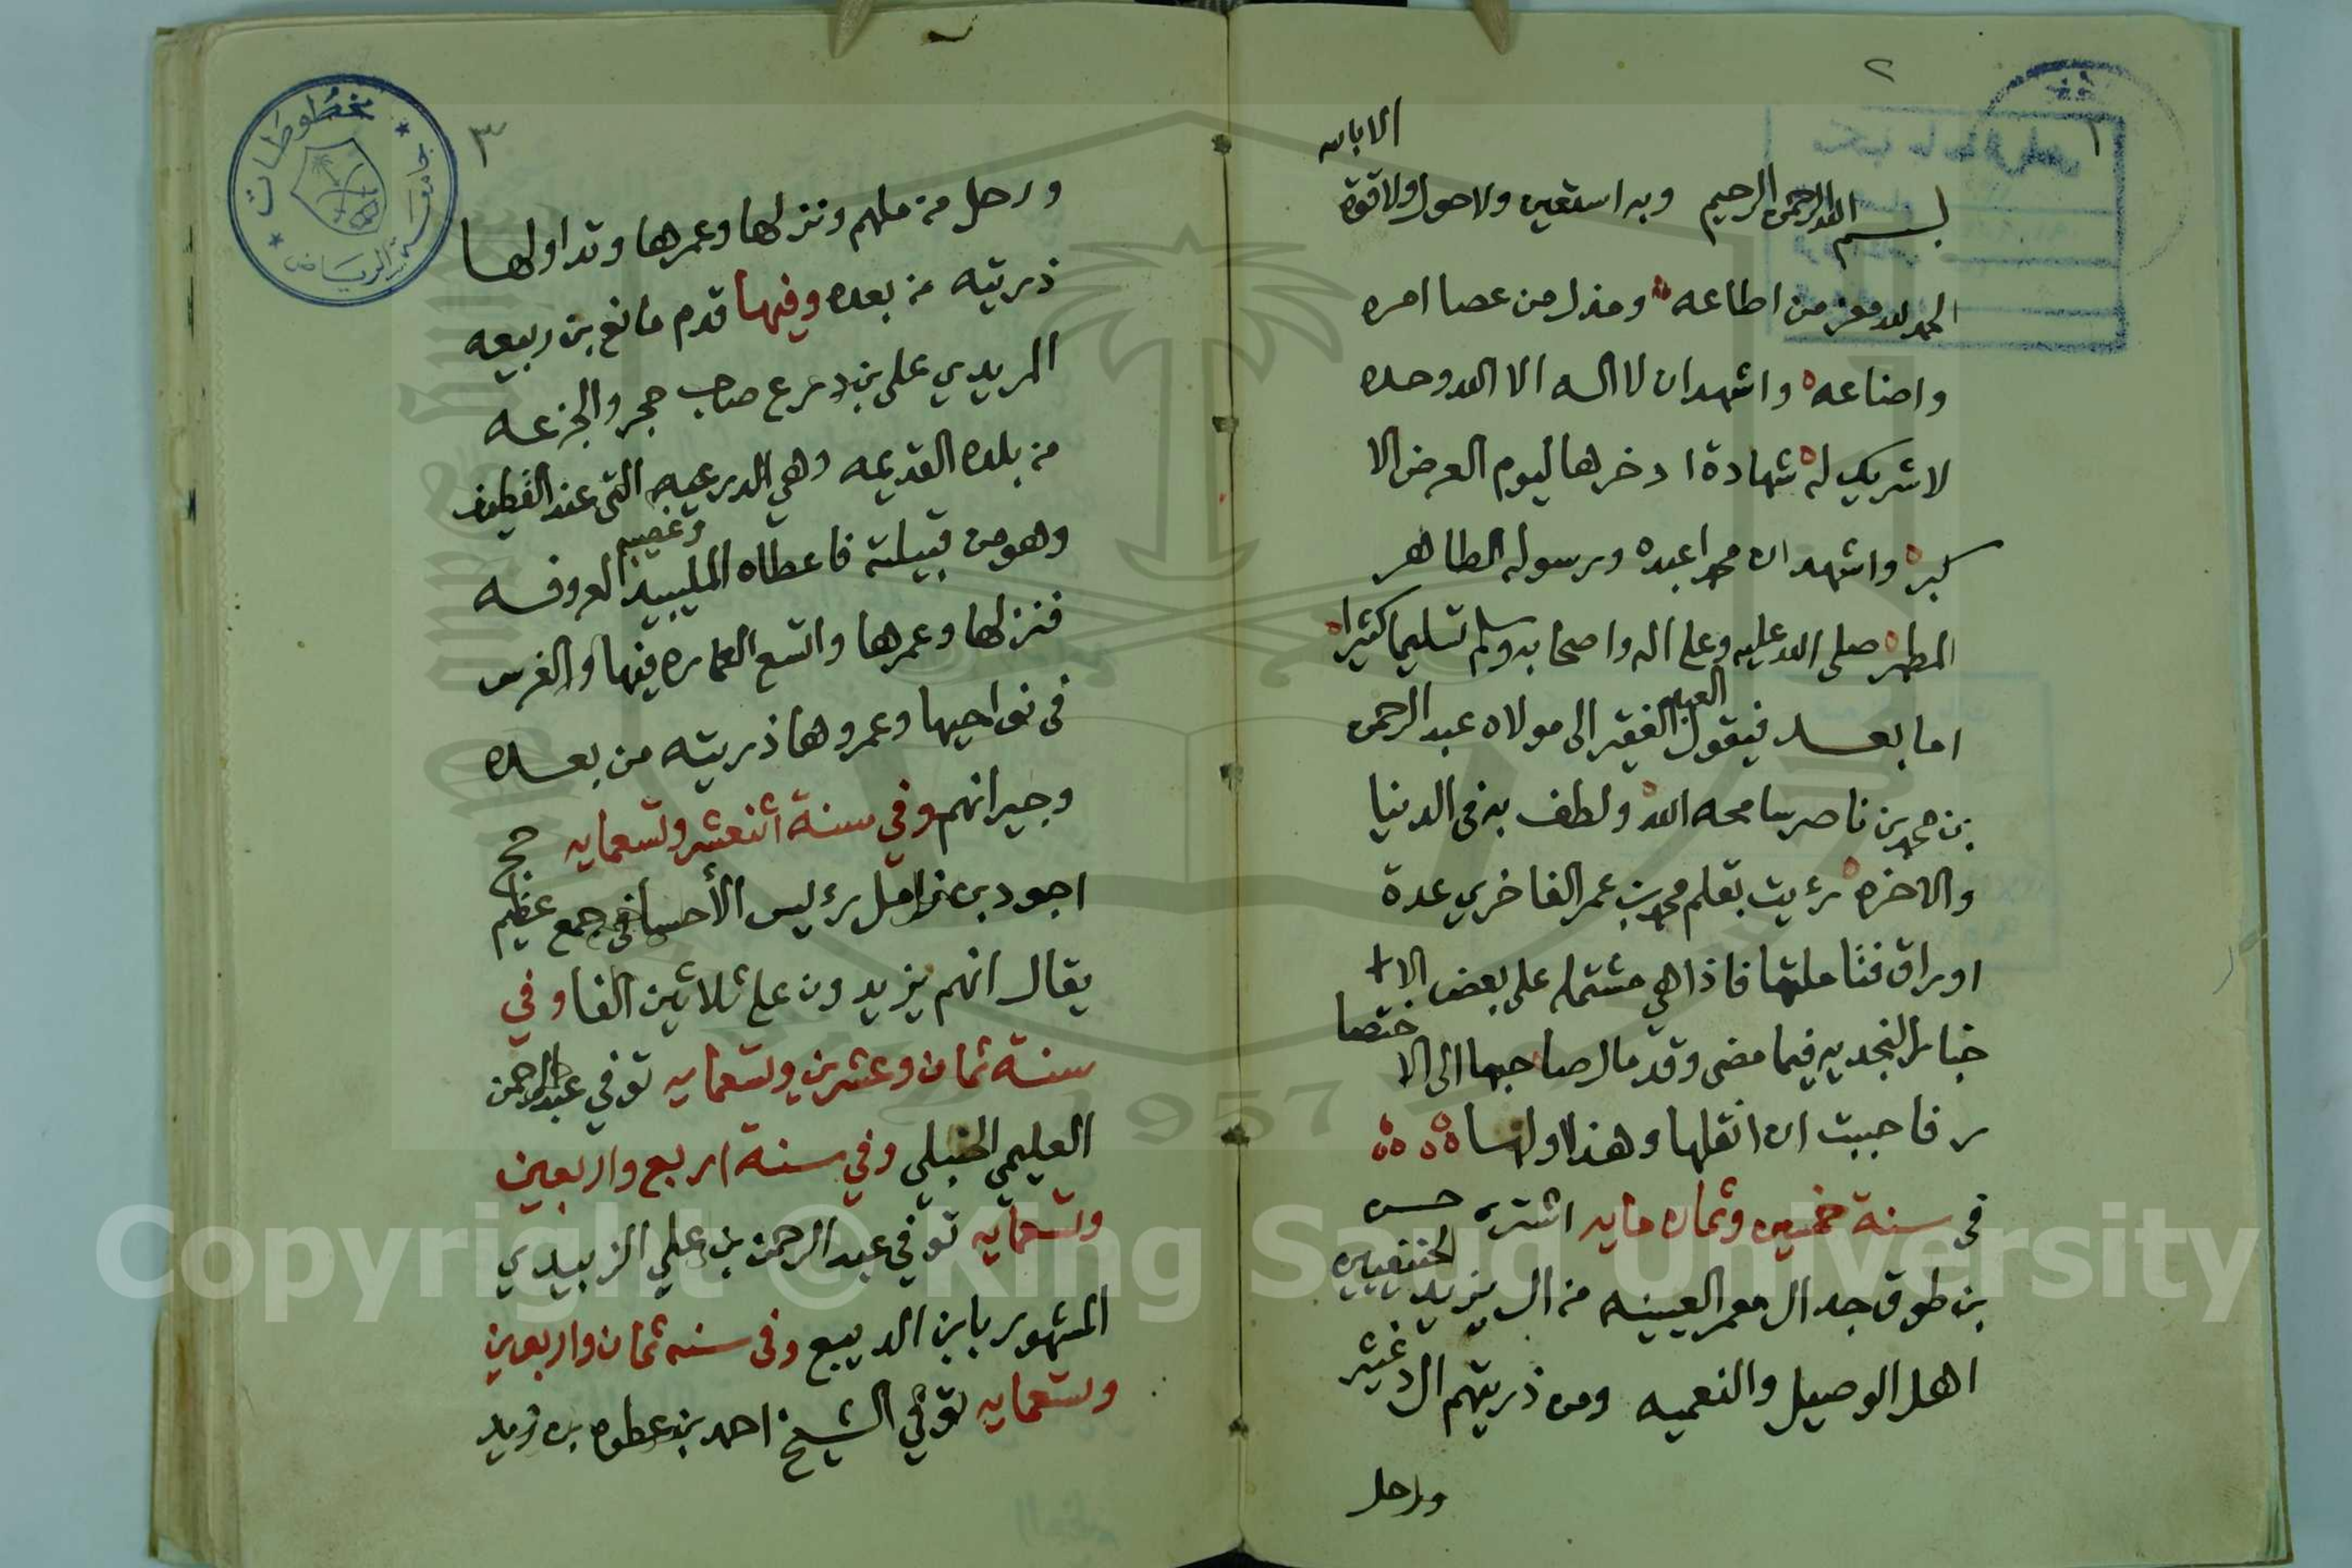 ٢
بسم الله الرحمن الرحيم وبه استعين ولا حول ولا قوة
الا بالله
الحمد لله معز من اطاعه ومذل من عصا امره
واضاعه واشهد ان لا اله الا الله وحده
لا شريك له شهادة ادخرها ليوم العرض الا
كبر واشهد ان محمدا عبده ورسوله الطاهر
المطهر صلى الله عليه وعلى اله واصحابه وسلم تسليما كثيرا
اما بعد فيقول العبد الفقير الى مولاه عبد الرحمن
بن محمد بن ناصر سامحه الله ولطف به في الدنيا
والاخره رءيت بقلم محمد بن عمر الفاخري عدة
اوراق فتاملتها فاذا هي مشتمله على بعض الا
خبار النجديه فيما مضى وقد مال صاحبها الى الا ختصا
ر فاحببت ان انقلها وهذا اولها
في سنة خمسين وثمان مايه اشترى حسن
بن طوق جد ال معمر العيينه من ال يزيد الحنفيين
اهل الوصيل والنعميه ومن ذريتهم ال دغيثر
ورحل
٣
ورحل من ملهم ونزلها وعمرها وتداولها
ذريته من بعده وفيها قدم مانع بن ربيعه
المريدي على بن درع صاحب حجر والجزعه
من بلده القديمه وهي الدرعيه التي عند القطيف
وهو من قبيلته فاعطاه المليبيد وغصيبه المعروفه
فنزلها وعمرها واتسع العماره فيها والغرس
في نواحيها وعمروها ذريته من بعده
وجيرانهم وفي سنة اثنعشر وتسعمايه حج
اجود بن زامل رءيس الأحسا في جمع عظيم
يقال انهم يزيدون على ثلاثين الفا وفي
سنة ثمان وعشرين وتسعمايه توفي عبد الرحمن
العليمي الحنبلي وفي سنة اربع واربعين
وتسعمايه توفي عبد الرحمن بن علي الزبيدي
المشهور بابن الديبع وفي سنه ثمان واربعين
وتسعمايه توفي الشيخ احمد بن عطوه بن زيد
مخطوطات
جامعة الرياض
1957
Copyright © King Saud University